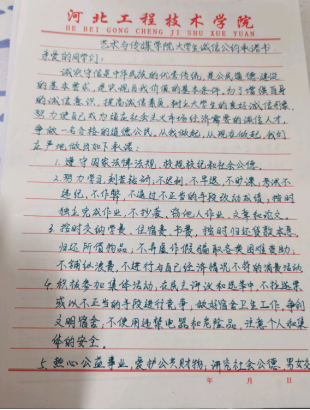 河北工程技术学院
HE BEI GONG CHENG JI SHU XUE YUAN
艺术与传媒学院大学生诚信公约承诺书
亲爱的同学们:
诚实守信是中华民族的优秀传统,是公民道德建设
的基本要求,是实现自我价值的基本条件。为了增强自身
的诚信意识,提高诚信素质,树立大学生的良好诚信形象,
努力使自己成为适应社会主义市场经济需要的诚信人才,
争做一名合格的道德公民,从我做起,从现在做起,我们
庄严地做出如下承诺:
1. 遵守国家法律法规,校规校纪和社会公德。
2. 努力学习,刻苦钻研,不迟到,不早退,不旷课,考试不
违纪,不作弊,不通过不正当的手段改动成绩;按时
独立完成作业,不抄袭、窃他人作业,文章和论文。
3. 按时交纳学费、住宿费、书费,按时归还贷款本息,
归还所借物品,不弄虚作假骗取各类困难资助,
不铺张浪费,不进行与自己经济情况不符的消费活动
4. 积极参加集体活动,在民主评议和选举中不拉选票
或以不正当的手段进行竞争,做好宿舍卫生工作,争创
文明宿舍,不使用违禁电器和危险品,注意个人和集
体的安全。
5. 热心公益事业,爱护公共财物,讲究社会公德,男女交
年 月 日